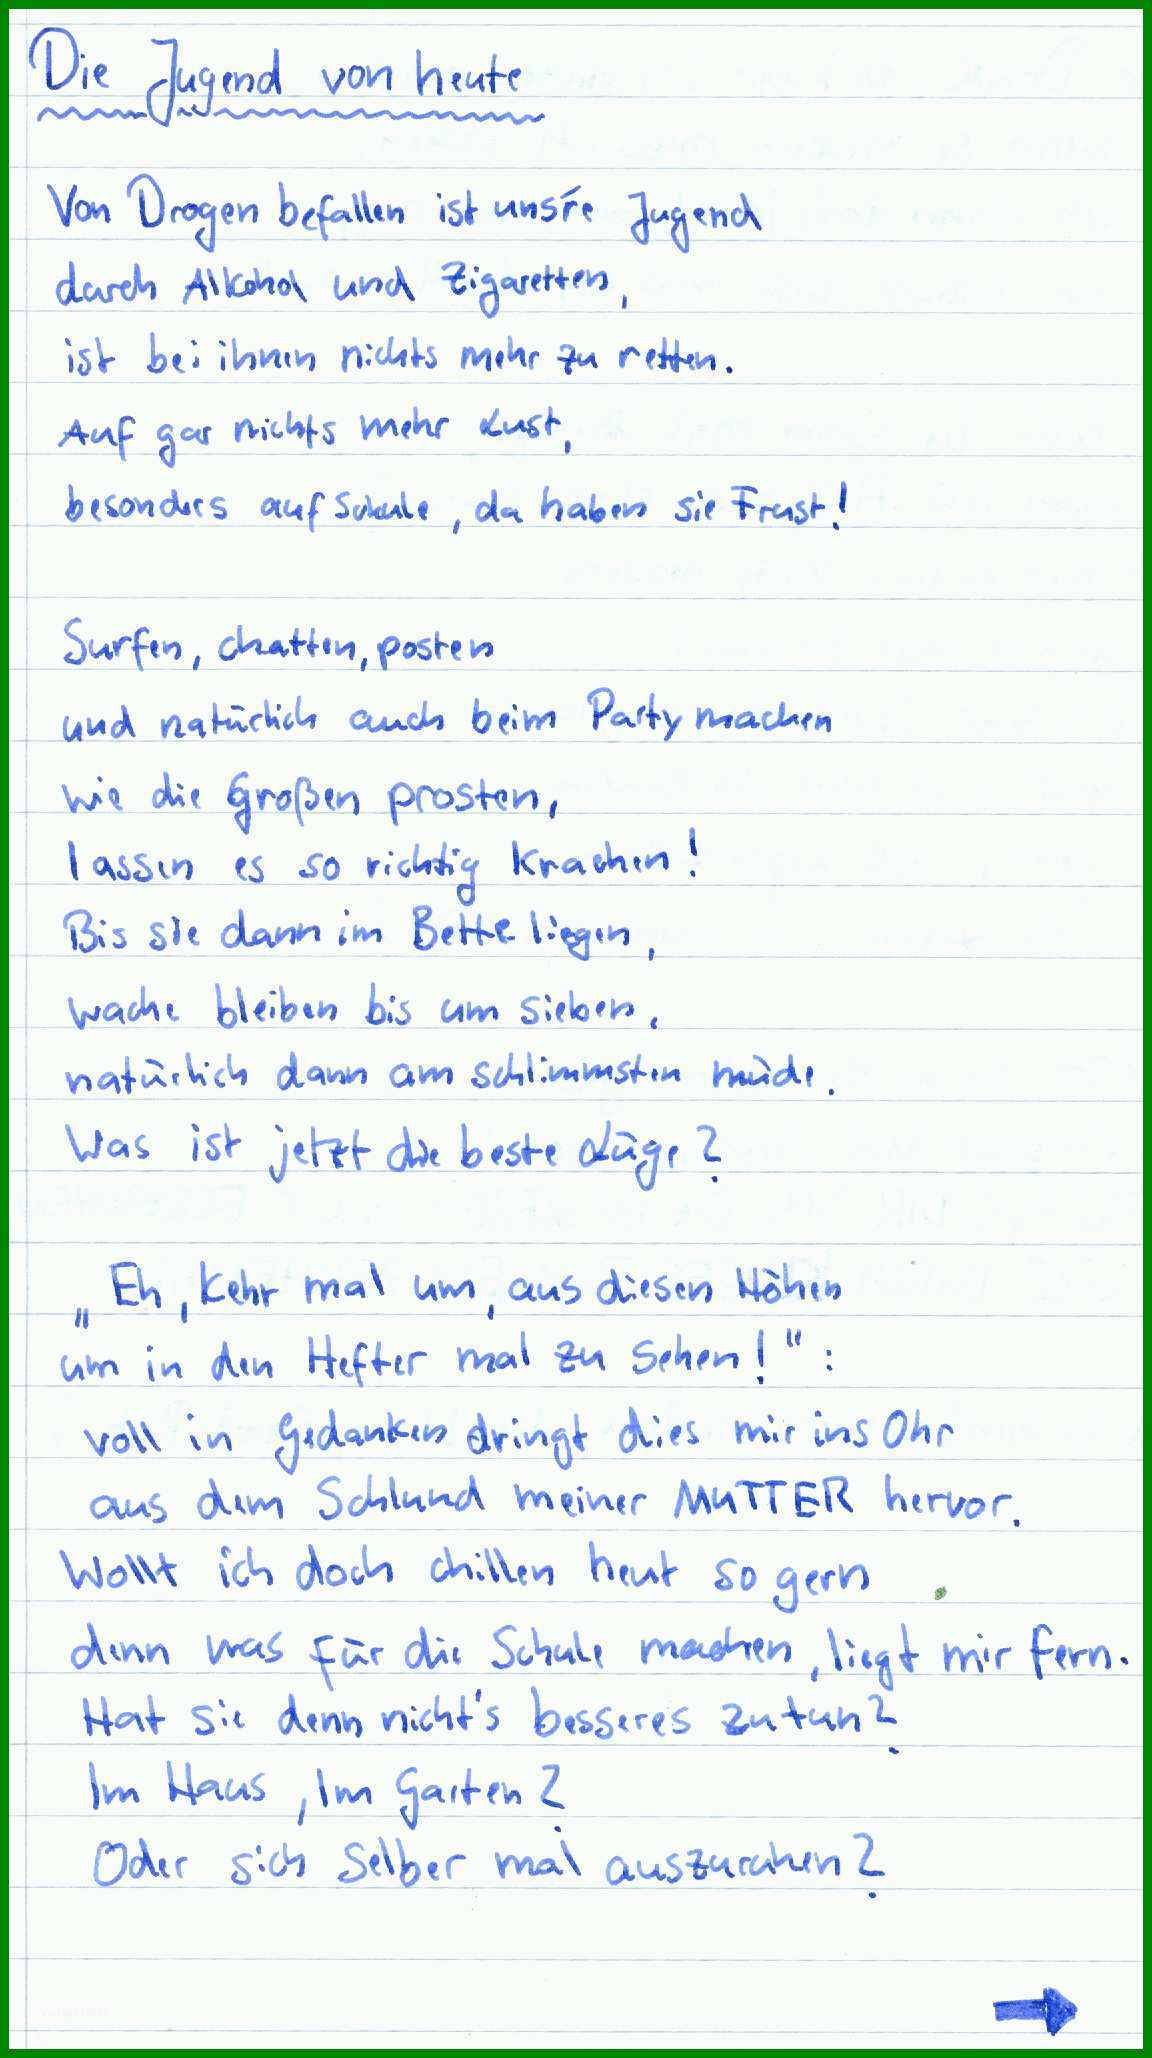 Die Jugend von heute
Von Drogen befallen ist uns're Jugend
durch Alkohol und Zigaretten,
ist bei ihnen nichts mehr zu retten.
Auf gar nichts mehr Lust,
besonders auf Schule, da haben sie Frust!
Surfen, chatten, posten
und natürlich auch beim Party machen
wie die Großen prosten,
lassen es so richtig krachen!
Bis sie dann im Bette liegen,
wache bleiben bis um sieben,
natürlich dann am schlimmsten müde.
Was ist jetzt die beste Lüge?
„Eh, kehr mal um, aus diesen Höhen
um in den Hefter mal zu sehen!“:
voll in Gedanken dringt dies mir ins Ohr
aus dem Schlund meiner MUTTER hervor.
Wollt ich doch chillen heut so gern
denn was für die Schule machen, liegt mir fern.
Hat sie denn nicht's besseres zutun?
Im Haus, Im Garten?
Oder sich selber mal auszuruhen?